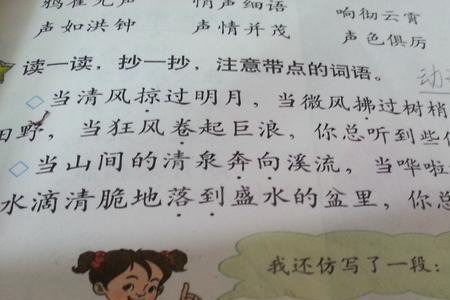 鸦雀无声 悄声细语 响彻云霄
声如洪钟 声情并茂 声色俱厉
读一读，抄一抄，注意带点的词语。
动
◇当清风掠过明月，当微风拂过树梢
田野，当狂风卷起巨浪，你总听到些
◇当山间的清泉奔向溪流，当哗啦
水滴清脆地落到盛水的盆里，你总
我还仿写了一段：